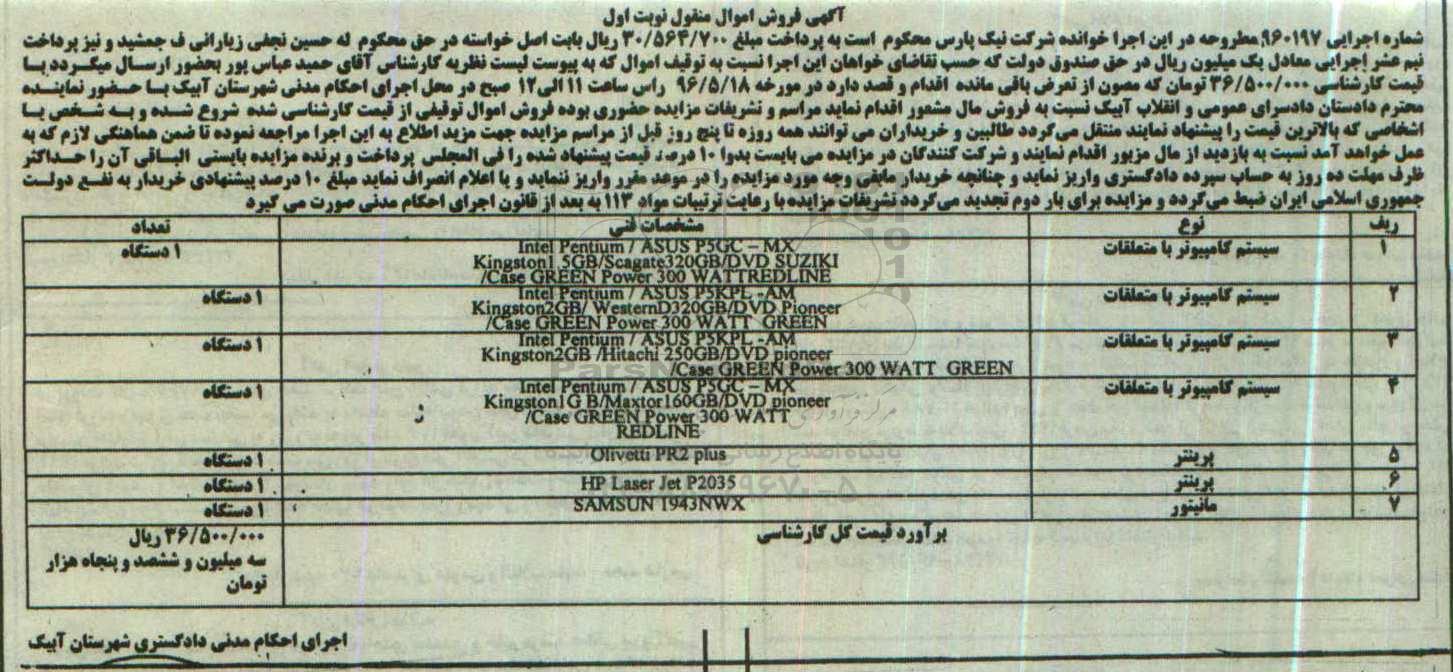 آگهی فروش اموال منقول نوبت اول
شماره اجرایی ۹۶۰۱۹۷ مطروحه در این اجرا خوانده شرکت نیک پارس محکوم است به پرداخت مبلغ ۳۰/۵۶۴/۷۰۰ ریال بابت اصل خواسته در حق محکوم له حسین نجفی زیارانی ف جمشید و نیز پرداخت
نیم عشر اجرایی معادل یک میلیون ریال در حق صندوق دولت که حسب تقاضای خواهان این اجرا نسبت به توقیف اموال که به پیوست لیست نظریه کارشناس آقای حمید عباس پور بحضور ارسال میگردد با
قیمت کارشناسی ۳۶/۵۰۰/۰۰۰ تومان که مصون از تعرض باقی مانده اقدام و قصد دارد در مورخه ۹۶/۵/۱۸ راس ساعت ۱۱ الی ۱۲ صبح در محل اجرای احکام مدنی شهرستان آبیک با حضور نماینده
محترم دادستان دادسرای عمومی و انقلاب آبیک نسبت به فروش مال مشعور اقدام نماید مراسم و تشریفات مزایده حضوری بوده فروش اموال توقیفی از قیمت کارشناسی شده شروع شده و به شخص یا
اشخاصی که بالاترین قیمت را پیشنهاد نمایند منتقل می‌گردد طالبین و خریداران می توانند همه روزه تا پنج روز قبل از مراسم مزایده جهت مزید اطلاع به این اجرا مراجعه نموده تا ضمن هماهنگی لازم که به
عمل خواهد آمد نسبت به بازدید از مال مزبور اقدام نمایند و شرکت کنندگان در مزایده می بایست بدوا ۱۰ درصد قیمت پیشنهاد شده را فی المجلس پرداخت و برنده مزایده بایستی الباقی آن را حداکثر
ظرف مهلت ده روز به حساب سپرده دادگستری واریز نماید و چنانچه خریدار مابقی وجه مورد مزایده را در موعد مقرر واریز ننماید و یا اعلام انصراف نماید مبلغ ۱۰ درصد پیشنهادی خریدار به نفع دولت
جمهوری اسلامی ایران ضبط می‌گردد و مزایده برای بار دوم تجدید می‌گردد تشریفات مزایده با رعایت ترتیبات مواد ۱۱۳ به بعد از قانون اجرای احکام مدنی صورت می گیرد
ریف نوع مشخصات فنی تعداد
۱ سیستم کامپیوتر با متعلقات Intel Pentium / ASUS P5GC – MX ۱ دستگاه
Kingston1.5GB/Scagate320GB/DVD SUZIKI
/Case GREEN Power 300 WATTREDLINE
۲ سیستم کامپیوتر با متعلقات Intel Pentium / ASUS P5KPL -AM ۱ دستگاه
Kingston2GB/ WesternD320GB/DVD Pioneer
/Case GREEN Power 300 WATT GREEN
۳ سیستم کامپیوتر با متعلقات Intel Pentium / ASUS P5KPL -AM ۱ دستگاه
Kingston2GB /Hitachi 250GB/DVD pioneer
/Case GREEN Power 300 WATT GREEN
۴ سیستم کامپیوتر با متعلقات Intel Pentium / ASUS P5GC – MX ۱ دستگاه
Kingston1G B/Maxtor160GB/DVD pioneer
/Case GREEN Power 300 WATT
REDLINE
۵ پرینتر Olivetti PR2 plus ۱ دستگاه
۶ پرینتر HP Laser Jet P2035 ۱ دستگاه
۷ مانیتور SAMSUN 1943NWX ۱ دستگاه
برآورد قیمت کل کارشناسی ۳۶/۵۰۰/۰۰۰ ریال
سه میلیون و ششصد و پنجاه هزار
تومان
اجرای احکام مدنی دادگستری شهرستان آبیک